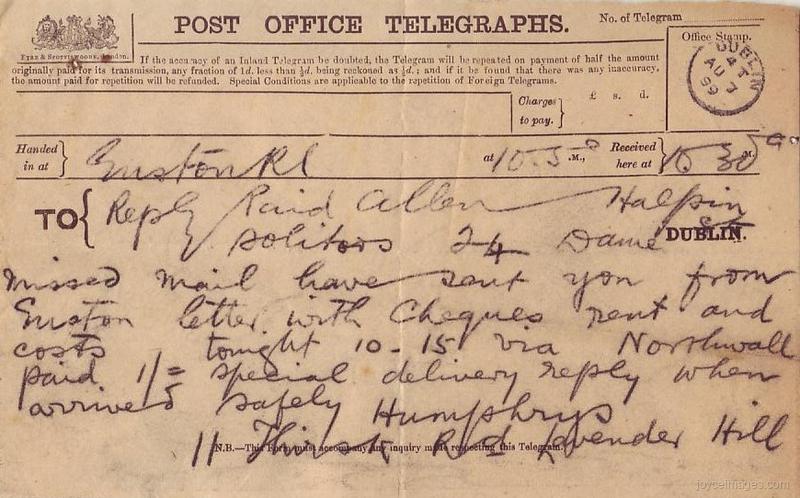 POST OFFICE TELEGRAPHS.
No. of Telegram
Office Stamp.
EYRE & SPOTTISWOODE, London.
If the accuracy of an Inland Telegram be doubted, the Telegram will be repeated on payment of half the amount
originally paid for its transmission, any fraction of 1d. less than ½d. being reckoned as ½d.; and if it be found that there was any inaccuracy,
the amount paid for repetition will be refunded. Special Conditions are applicable to the repetition of Foreign Telegrams.
DUBLIN
4 T
AU 7
99
Charges
to pay.
£ s. d.
Handed
in at
Euston Rd
at
10.5
M.,
Received
here at
10 30
M.
TO
Reply Paid Allen Halpin
Solitors 24 Dame St
DUBLIN.
Missed mail have sent you from
Euston letter with Cheques rent and
costs tonight 10-15 via Northwall
paid 1/5 special delivery reply when
arrived safely Humphrys
11 Thirsk Rd Lavender Hill
N.B.—This Form must accompany any inquiry made respecting this Telegram.
joyceimages.com